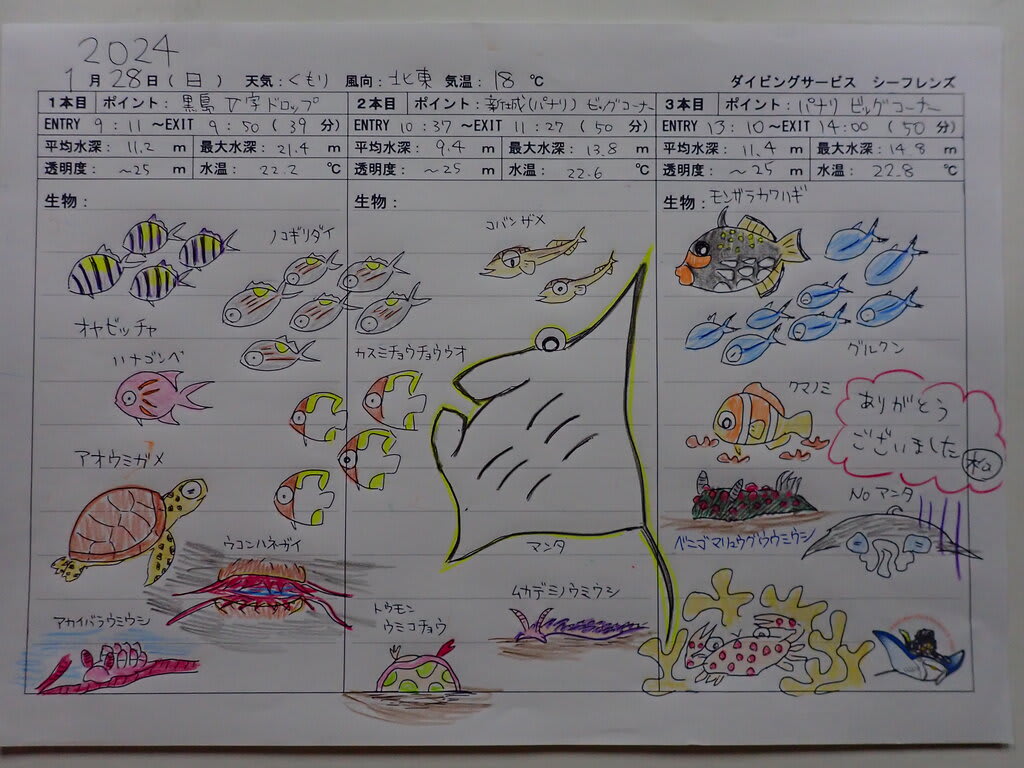 2024
1月28日(日) 天気:くもり 風向:北東 気温:18℃ ダイビングサービス シーフレンズ
1本目 ポイント:黒島 V字ドロップ
ENTRY 9:11 ~EXIT 9:50 (39 分)
平均水深: 11.2 m 最大水深: 21.4 m
透明度: ~25 m 水温: 22.2 ℃
生物:
ノコギリダイ
オヤビッチャ
ハナゴンベ
アオウミガメ
ウコンハネガイ
アカイバラウミウシ
2本目 ポイント:新城(パナリ) ビッグコーナー
ENTRY 10:37 ~EXIT 11:27 (50 分)
平均水深: 9.4 m 最大水深: 13.8 m
透明度: ~25 m 水温: 22.6 ℃
生物:
コバンザメ
カスミチョウチョウウオ
マンタ
ムカデミノウミウシ
トウモン
ウミコチョウ
3本目 ポイント:パナリ ビッグコーナー
ENTRY 13:10 ~EXIT 14:00 (50 分)
平均水深: 11.4 m 最大水深: 14.8 m
透明度: ~25 m 水温: 22.8 ℃
生物:
モンガラカワハギ
グルクン
クマノミ
ありがとう
ございました
松
Noマンタ
ベニゴマリュウグウウミウシ